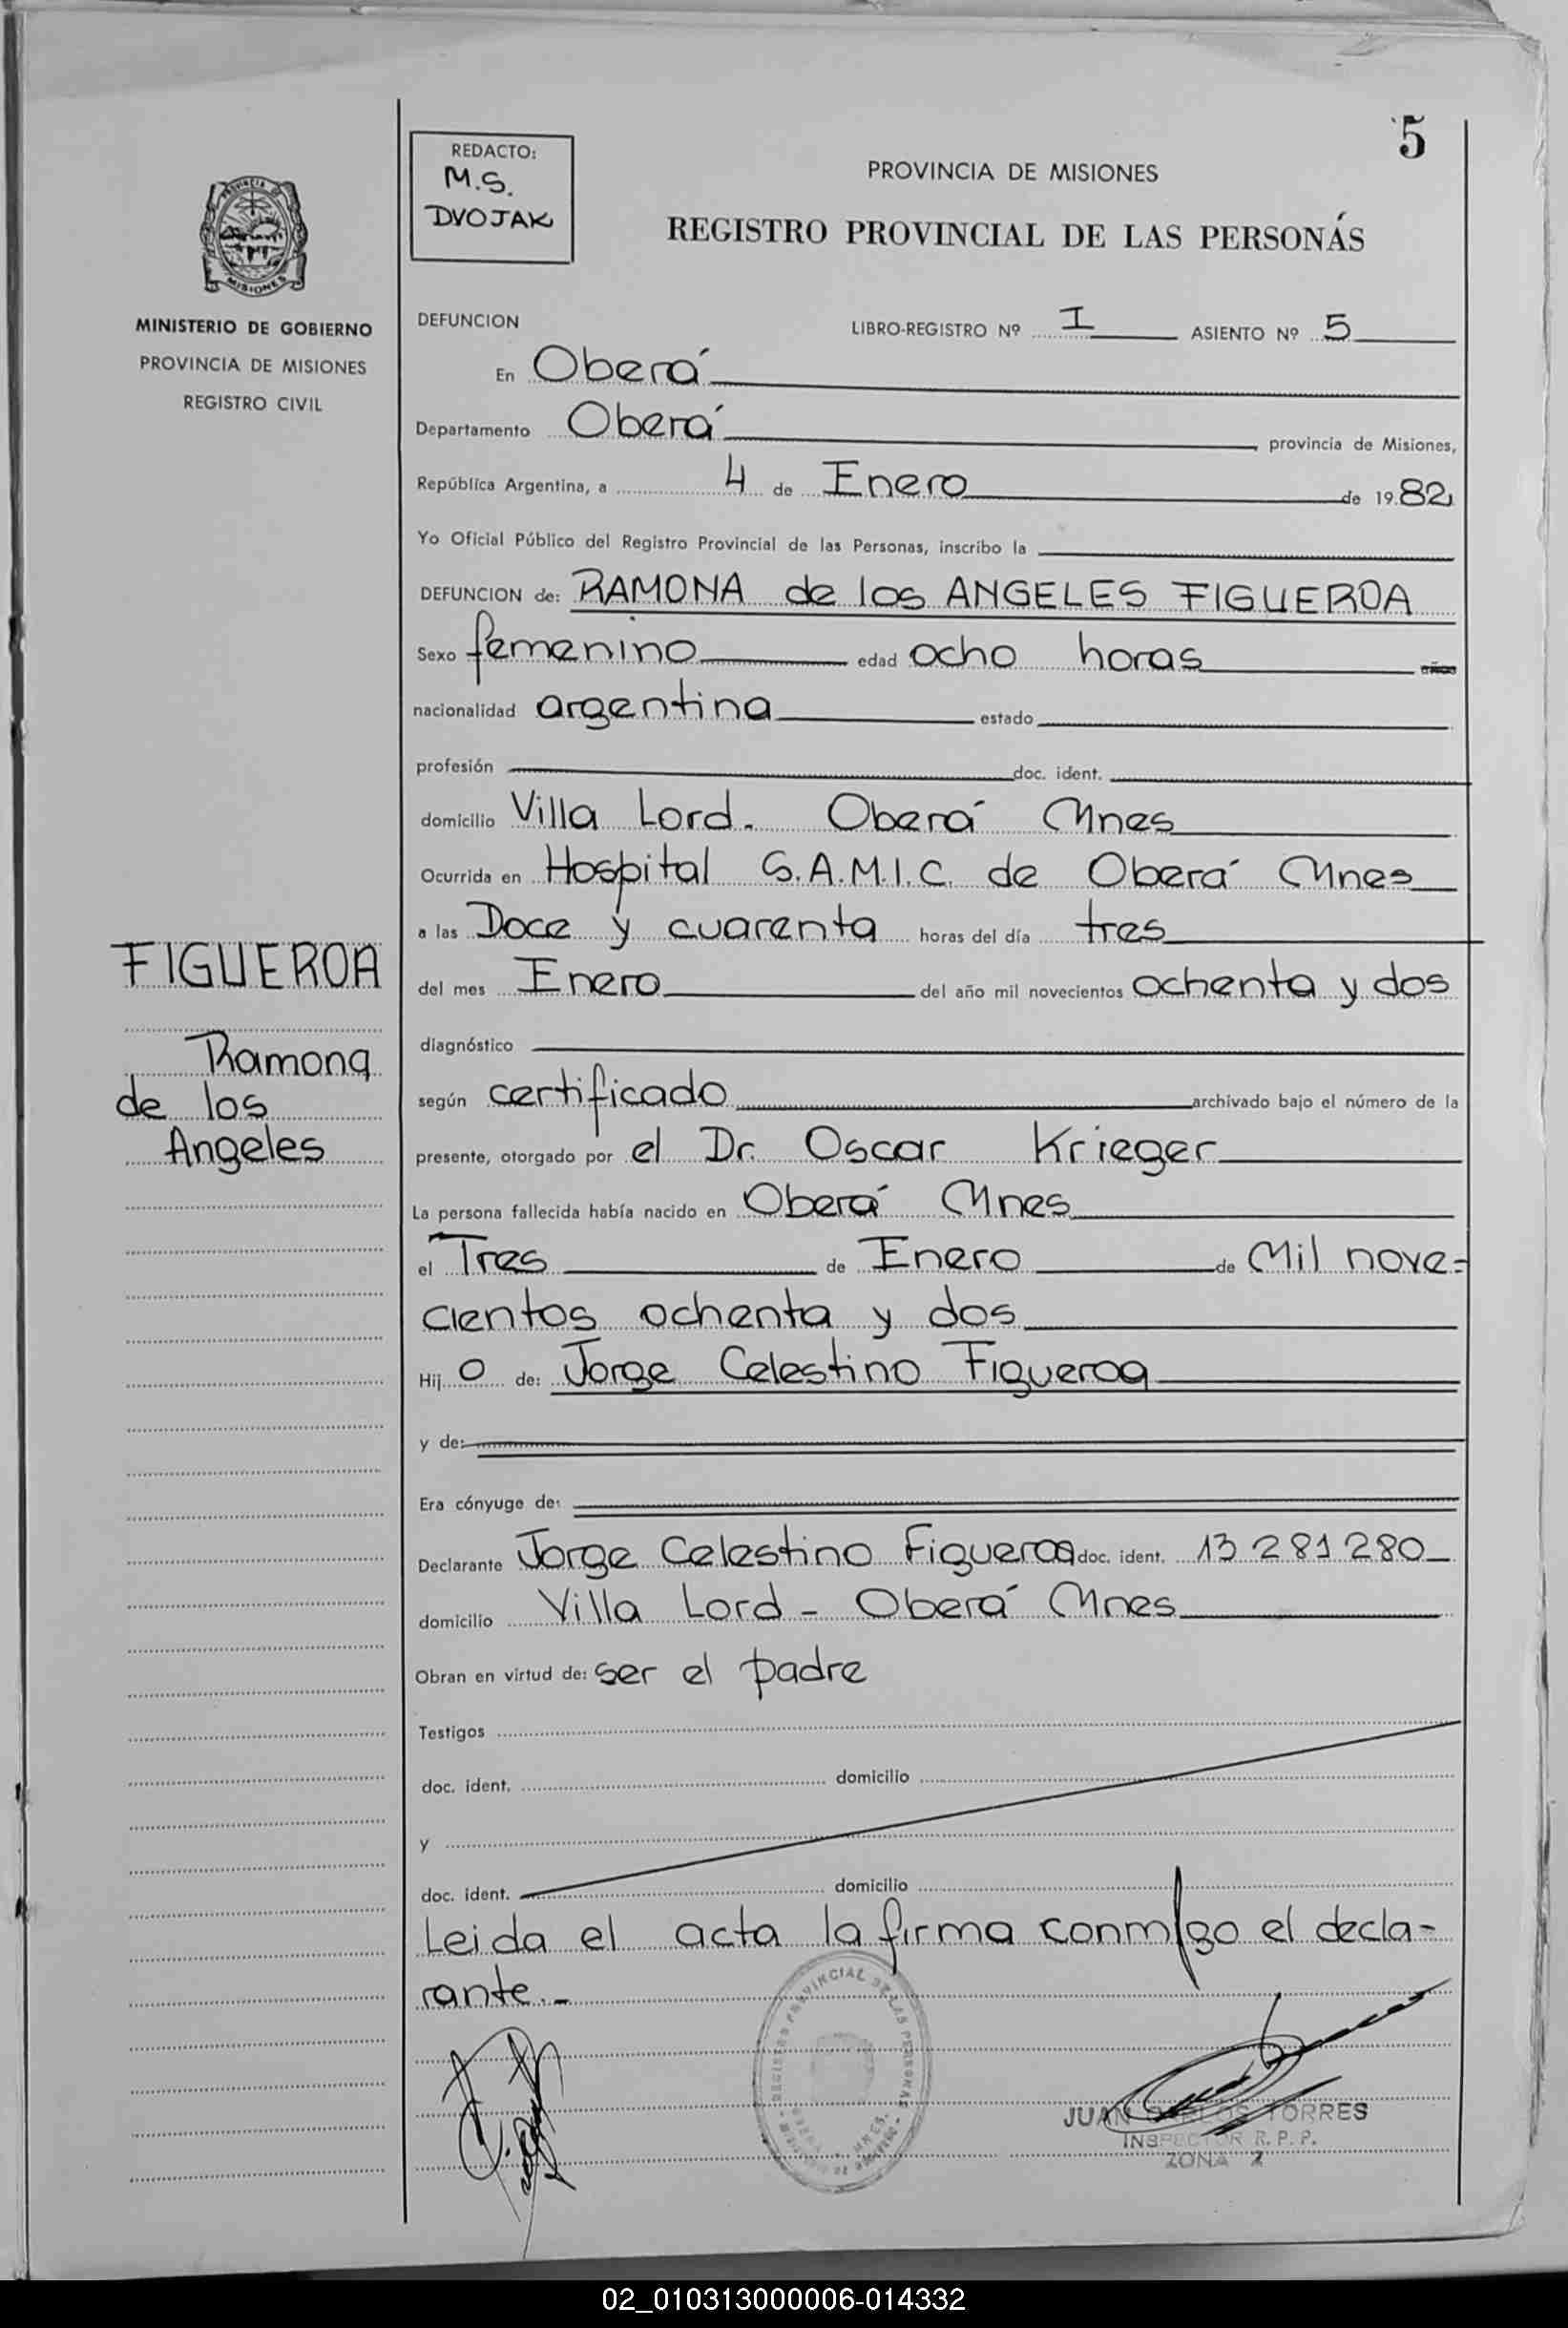 5
REDACTO:
M.S.
DVOJAK
PROVINCIA DE MISIONES
REGISTRO PROVINCIAL DE LAS PERSONAS
MISIONES
MINISTERIO DE GOBIERNO
PROVINCIA DE MISIONES
REGISTRO CIVIL
DEFUNCION LIBRO-REGISTRO Nº I ASIENTO Nº 5
En Oberá
Departamento Oberá provincia de Misiones,
República Argentina, a 4 de Enero de 1982
Yo Oficial Público del Registro Provincial de las Personas, inscribo la
DEFUNCION de: RAMONA de los ANGELES FIGUEROA
Sexo femenino edad ocho horas años
nacionalidad argentina estado
profesión doc. ident.
domicilio Villa Lord. Oberá Mnes
Ocurrida en Hospital S.A.M.I.C. de Oberá Mnes
a las Doce y cuarenta horas del día tres
del mes Enero del año mil novecientos ochenta y dos
diagnóstico
según certificado archivado bajo el número de la
presente, otorgado por el Dr. Oscar Krieger
La persona fallecida había nacido en Oberá Mnes
el Tres de Enero de Mil nove=
cientos ochenta y dos
Hij o de: Jorge Celestino Figueroa
y de:
Era cónyuge de:
Declarante Jorge Celestino Figueroa doc. ident. 13 281 280
domicilio Villa Lord - Oberá Mnes
Obran en virtud de: ser el padre
Testigos
doc. ident. domicilio
y
doc. ident. domicilio
Leida el acta la firma conmigo el decla-
rante.-
FIGUEROA
Ramona
de los
Angeles
REGISTRO PROVINCIAL DE LAS PERSONAS
JUAN CARLOS TORRES
INSPECTOR R.P.P.
ZONA 2
02_010313000006-014332